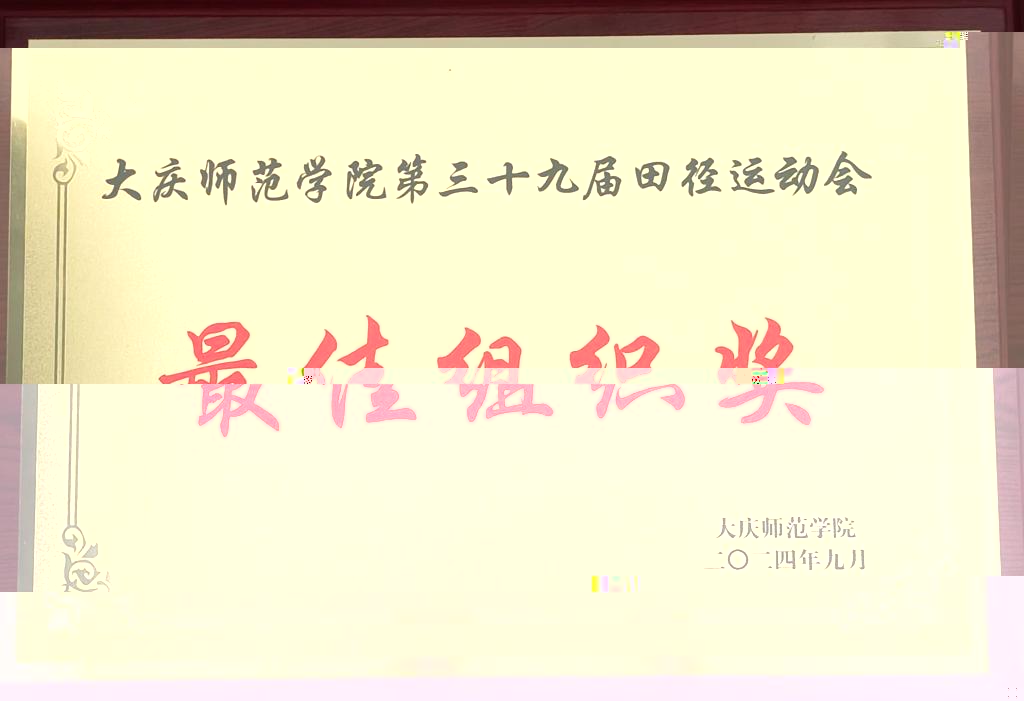 大庆师范学院第三十九届田径运动会
最佳组织奖
大庆师范学院
二〇二四年九月